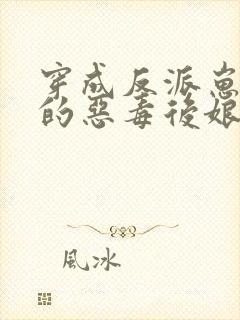 穿成反派崽
的惡毒後娘
風冰